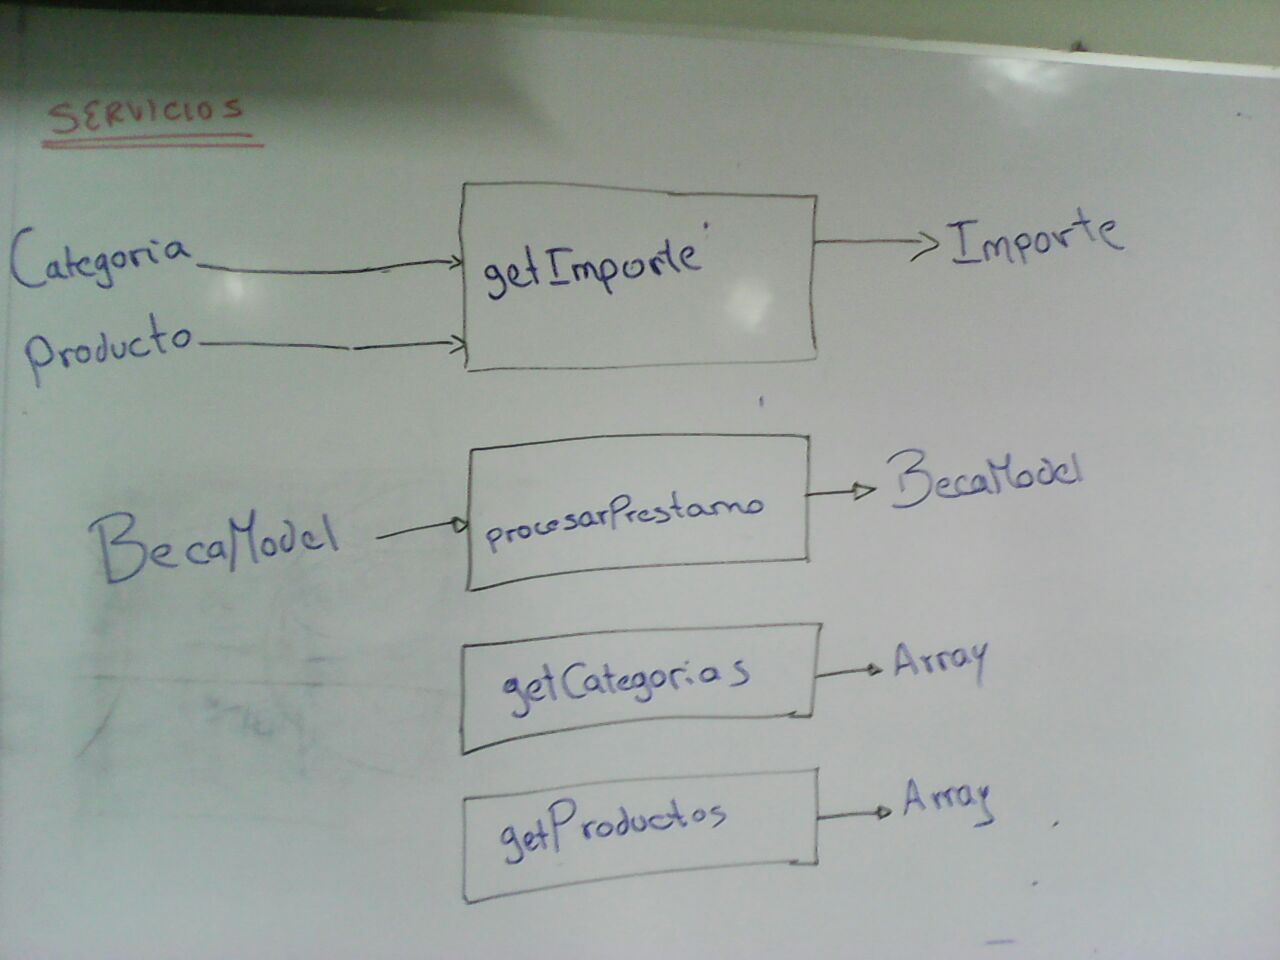 SERVICIOS
Categoria
producto
getImporte
Importe
BecaModel
procesarPrestamo
BecaModel
getCategorias
Array
getProductos
Array